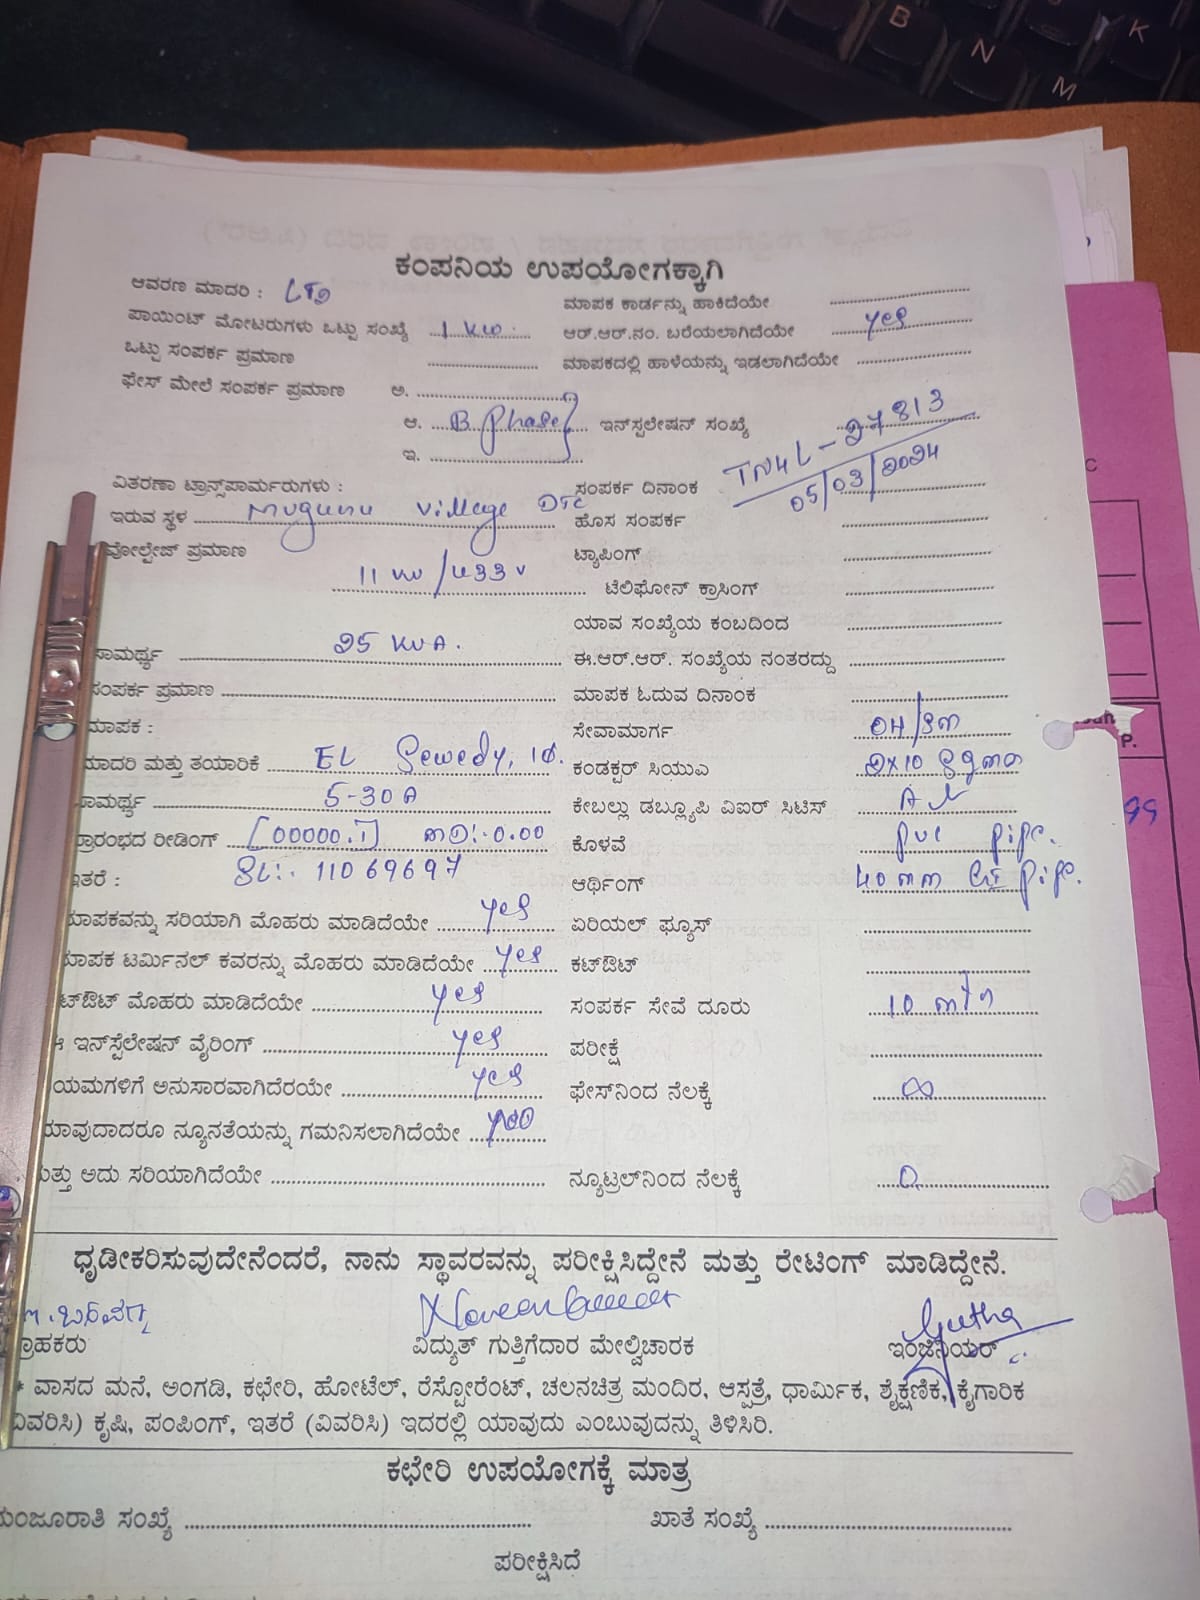 ಕಂಪನಿಯ ಉಪಯೋಗಕ್ಕಾಗಿ
ಆವರಣ ಮಾದರಿ : LT2 ಮಾಪಕ ಕಾರ್ಡನ್ನು ಹಾಕಿದೆಯೇ
ಪಾಯಿಂಟ್ ಮೋಟರುಗಳು ಒಟ್ಟು ಸಂಖ್ಯೆ 1 KW. ಆರ್.ಆರ್.ನಂ. ಬರೆಯಲಾಗಿದೆಯೇ yes
ಒಟ್ಟು ಸಂಪರ್ಕ ಪ್ರಮಾಣ ಮಾಪಕದಲ್ಲಿ ಹಾಳೆಯನ್ನು ಇಡಲಾಗಿದೆಯೇ
ಫೇಸ್ ಮೇಲೆ ಸಂಪರ್ಕ ಪ್ರಮಾಣ ಅ.
ಆ. B phase ಇನ್‌ಸ್ಟಲೇಷನ್ ಸಂಖ್ಯೆ TN4L-27813
ಇ.
ವಿತರಣಾ ಟ್ರಾನ್ಸ್‌ಪಾರ್ಮರುಗಳು : ಸಂಪರ್ಕ ದಿನಾಂಕ 05/03/2024
ಇರುವ ಸ್ಥಳ village DTC ಹೊಸ ಸಂಪರ್ಕ
ವೋಲ್ಟೇಜ್ ಪ್ರಮಾಣ ಟ್ಯಾಪಿಂಗ್
11 /433v ಟೆಲಿಫೋನ್ ಕ್ರಾಸಿಂಗ್
ಯಾವ ಸಂಖ್ಯೆಯ ಕಂಬದಿಂದ
ಸಾಮರ್ಥ್ಯ 25 KVA. ಈ.ಆರ್.ಆರ್. ಸಂಖ್ಯೆಯ ನಂತರದ್ದು
ಸಂಪರ್ಕ ಪ್ರಮಾಣ ಮಾಪಕ ಓದುವ ದಿನಾಂಕ
ಮಾಪಕ : ಸೇವಾಮಾರ್ಗ OH/
ಮಾದರಿ ಮತ್ತು ತಯಾರಿಕೆ EL Sewedy, 1Ø. ಕಂಡಕ್ಟರ್ ಸಿಯುಎ 2x10
ಸಾಮರ್ಥ್ಯ 5-30A ಕೇಬಲ್ಲು ಡಬ್ಲ್ಯೂಪಿ ವಿಐರ್ ಸಿಟಿಸ್
ಪ್ರಾರಂಭದ ರೀಡಿಂಗ್ [00000.1] MD:.0.00 ಕೊಳವೆ pvc pipe.
ಇತರೆ : SL:. 11069697 ಆರ್ಥಿಂಗ್ 40mm GI pipe.
ಮಾಪಕವನ್ನು ಸರಿಯಾಗಿ ಮೊಹರು ಮಾಡಿದೆಯೇ yes ಏರಿಯಲ್ ಫ್ಯೂಸ್
ಮಾಪಕ ಟರ್ಮಿನಲ್ ಕವರನ್ನು ಮೊಹರು ಮಾಡಿದೆಯೇ yes ಕಟ್‌ಔಟ್
ಟ್‌ಔಟ್ ಮೊಹರು ಮಾಡಿದೆಯೇ yes ಸಂಪರ್ಕ ಸೇವೆ ದೂರು 10
ಇನ್‌ಸ್ಟೆಲೇಷನ್ ವೈರಿಂಗ್ yes ಪರೀಕ್ಷೆ
ಯಮಗಳಿಗೆ ಅನುಸಾರವಾಗಿದೆರಯೇ yes ಫೇಸ್‌ನಿಂದ ನೆಲಕ್ಕೆ ∞
ಯಾವುದಾದರೂ ನ್ಯೂನತೆಯನ್ನು ಗಮನಿಸಲಾಗಿದೆಯೇ
ಮತ್ತು ಅದು ಸರಿಯಾಗಿದೆಯೇ ನ್ಯೂಟ್ರಲ್‌ನಿಂದ ನೆಲಕ್ಕೆ 0
ಧೃಡೀಕರಿಸುವುದೇನೆಂದರೆ, ನಾನು ಸ್ಥಾವರವನ್ನು ಪರೀಕ್ಷಿಸಿದ್ದೇನೆ ಮತ್ತು ರೇಟಿಂಗ್ ಮಾಡಿದ್ದೇನೆ.
ಗ್ರಾಹಕರು ವಿದ್ಯುತ್ ಗುತ್ತಿಗೆದಾರ ಮೇಲ್ವಿಚಾರಕ ಇಂಜಿನಿಯರ್
* ವಾಸದ ಮನೆ, ಅಂಗಡಿ, ಕಛೇರಿ, ಹೋಟೆಲ್, ರೆಸ್ಟೋರೆಂಟ್, ಚಲನಚಿತ್ರ ಮಂದಿರ, ಆಸ್ಪತ್ರೆ, ಧಾರ್ಮಿಕ, ಶೈಕ್ಷಣಿಕ, ಕೈಗಾರಿಕ
ವಿವರಿಸಿ) ಕೃಷಿ, ಪಂಪಿಂಗ್, ಇತರೆ (ವಿವರಿಸಿ) ಇದರಲ್ಲಿ ಯಾವುದು ಎಂಬುವುದನ್ನು ತಿಳಿಸಿರಿ.
ಕಛೇರಿ ಉಪಯೋಗಕ್ಕೆ ಮಾತ್ರ
ಮಂಜೂರಾತಿ ಸಂಖ್ಯೆ ಖಾತೆ ಸಂಖ್ಯೆ
ಪರೀಕ್ಷಿಸಿದೆ